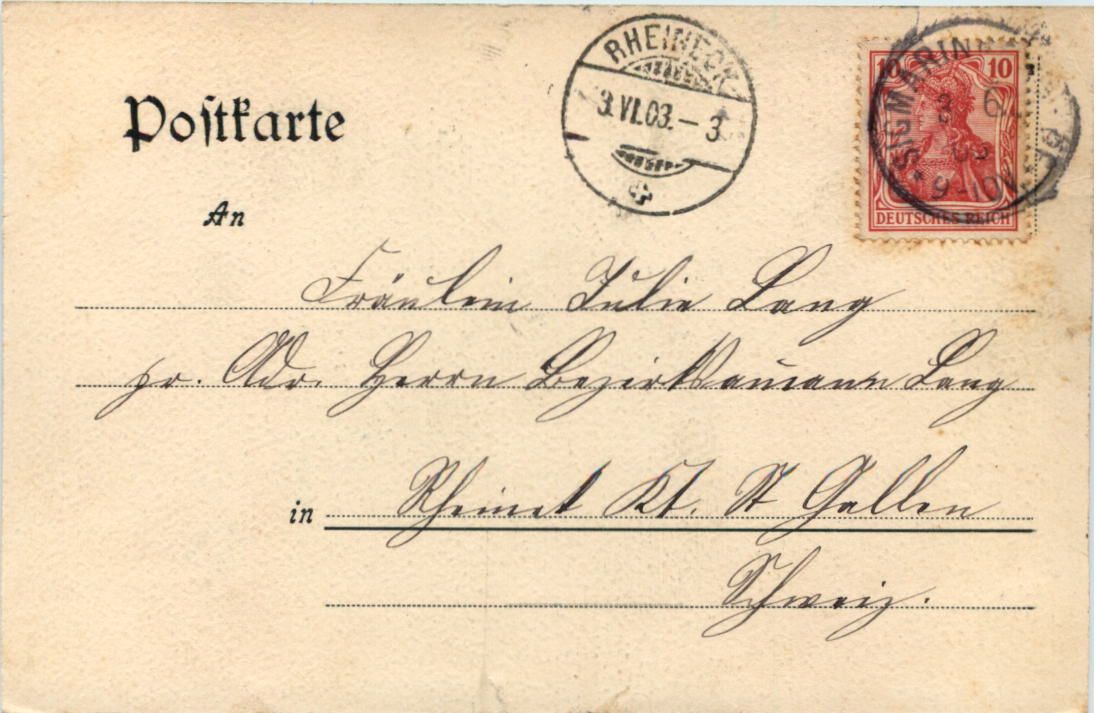 Postkarte
RHEINECK
3.VI.03.–3
SIGMARINGEN
3 6
9-10V
10 10
DEUTSCHES REICH
An
Fräulein Julie Lang
pr. Adr. Herrn Bezirksamann Lang
in Rheinek Kt. St Gallen
Schweiz.